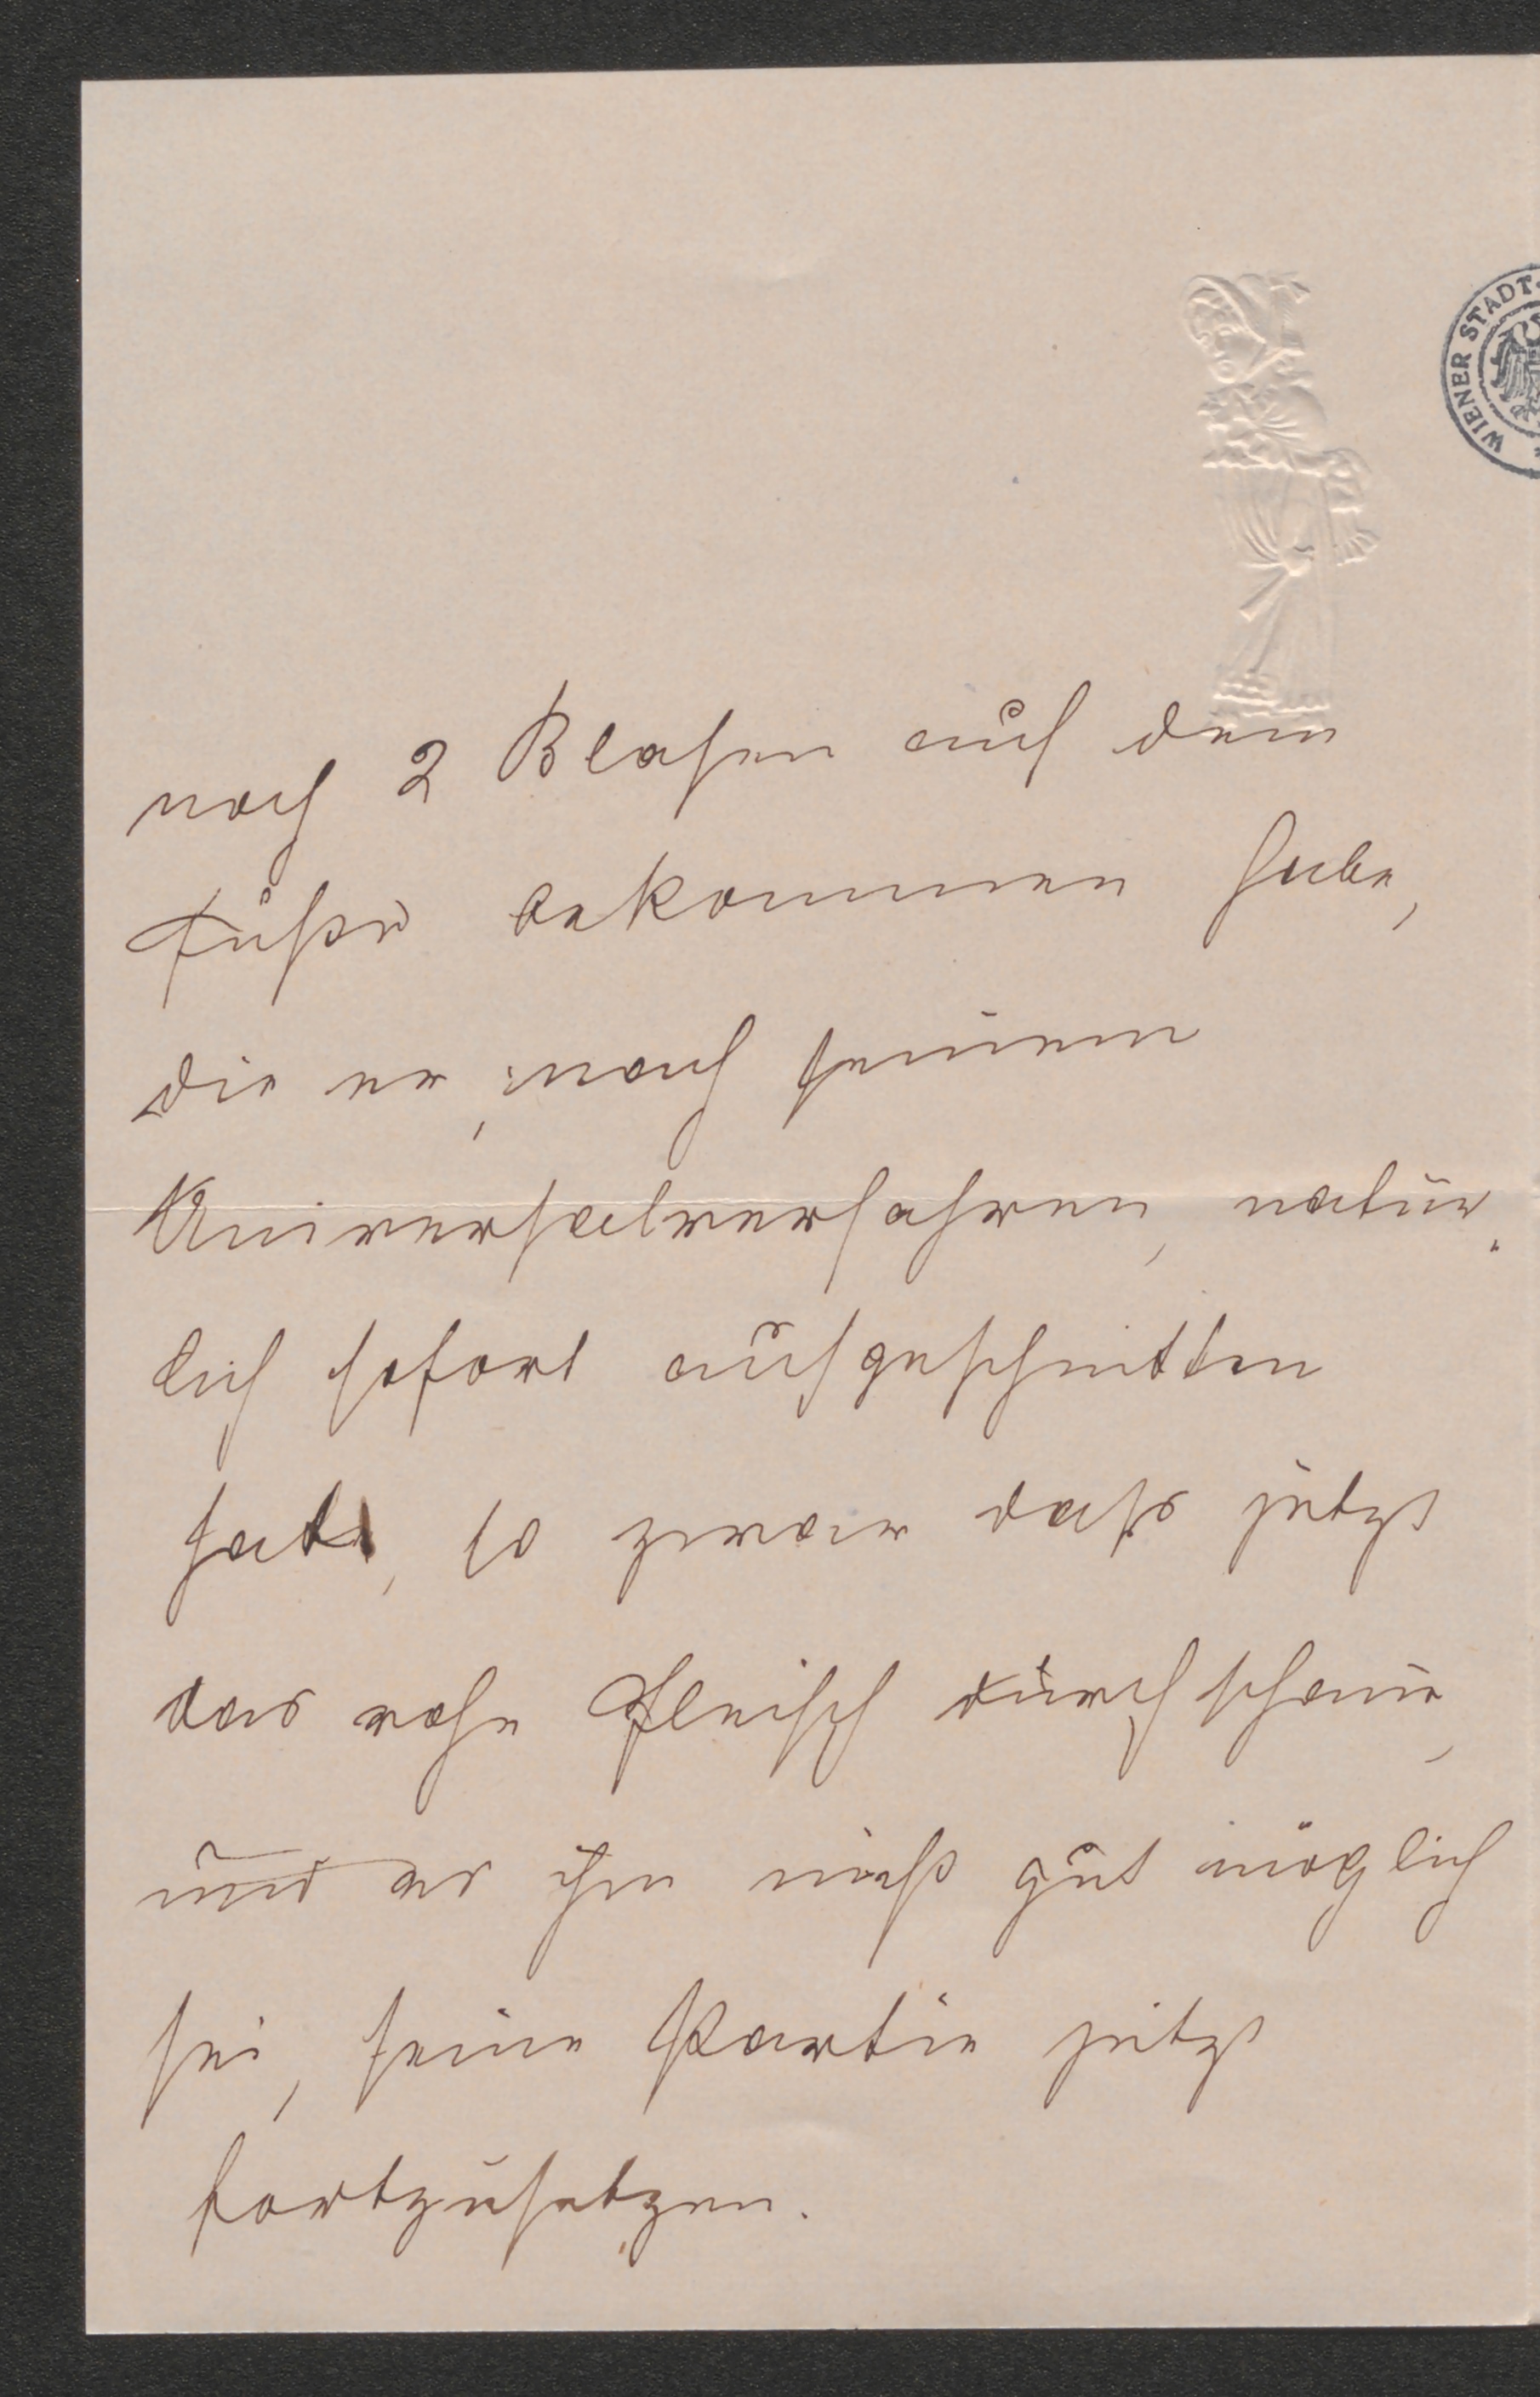 WIENER STADT-
noch 2 Blasen auf dem
Fuße bekommen habe,
die er, nach seinem
Universalverfahren, natür-
lich sofort aufgeschnitten
hat, so zwar daß jetzt
das rohe Fleisch durchschaue,
und es ihm nicht gut möglich
sei, seine Partie jetzt
fortzusetzen.